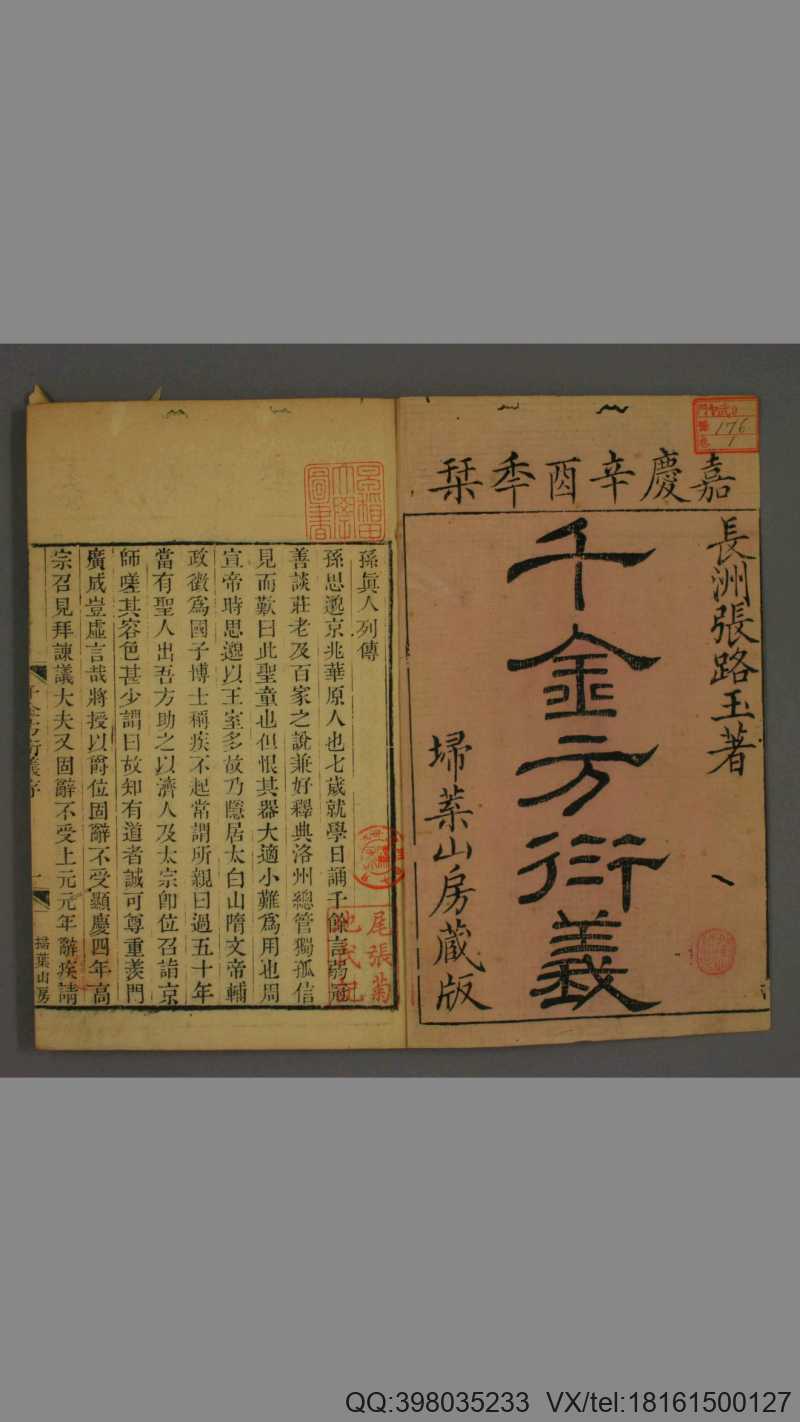 嘉慶辛酉季栞
長洲張路玉著
千金方衍義
埽葉山房藏版
176
1
早稻田
大學
圖書
孫眞人列傳
孫思邈京兆華原人也七歲就學日誦千餘言弱冠
善談莊老及百家之說兼好釋典洛州總管獨孤信
見而歎曰此聖童也但恨其器大適小難爲用也周
宣帝時思邈以王室多故乃隱居太白山隋文帝輔
政徵爲國子博士稱疾不起常謂所親曰過五十年
當有聖人出吾方助之以濟人及太宗卽位召詣京
師嗟其容色甚少謂曰故知有道者誠可尊重羨門
廣成豈虛言哉將授以爵位固辭不受顯慶四年高
宗召見拜諫議大夫又固辭不受上元元年辭疾請
千金方衍義序
一
掃葉山房
尾張菊
QQ:398035233 VX/tel:18161500127